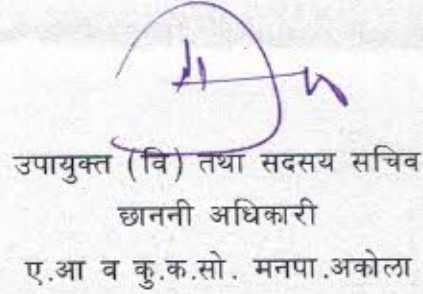 उपायुक्त (वि) तथा सदसय सचिव
छाननी अधिकारी
ए.आ व कु.क.सो. मनपा.अकोला